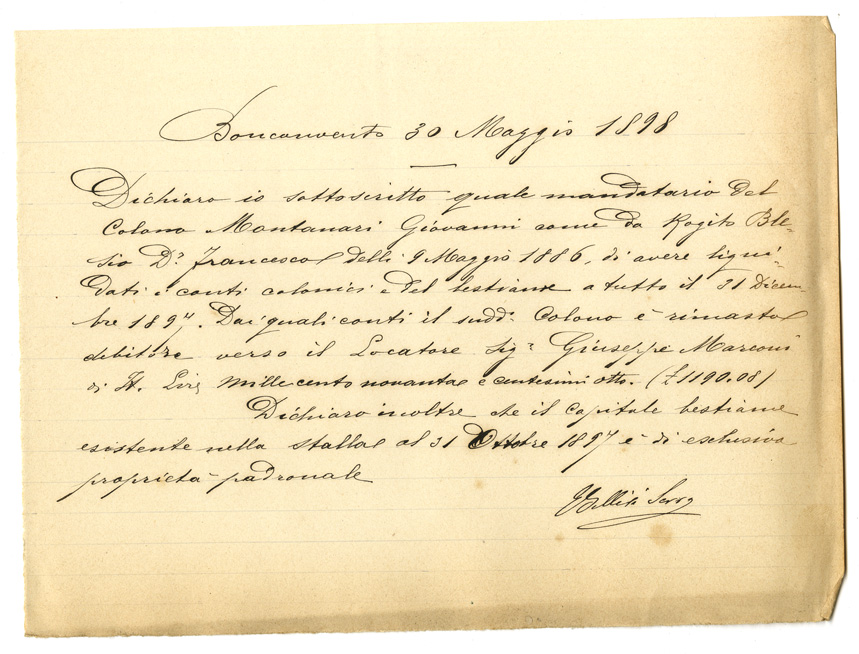 Bonconvento 30 Maggio 1898
Dichiaro io sottoscritto quale mandatario del
Colono Montanari Giovanni come da Rogito Ble-
sio D.r Francesco delli 9 Maggio 1886, di avere liqui-
dati i conti colonici e del bestiame a tutto il 31 Dicem-
bre 1897. Dai quali conti il sudd.o Colono è rimasto
debitore verso il Locatore Sig.r Giuseppe Marconi
di It. Lire Mille cento novanta e centesimi otto. (£ 1190.08)
Dichiaro inoltre che il capitale bestiame
esistente nella stalla al 31 Ottobre 1897 è di esclusiva
proprietà padronale